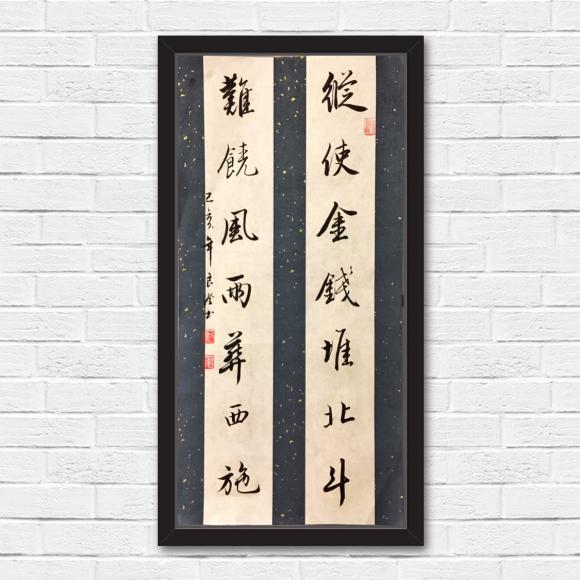 縱使金錢堆北斗
難饒風雨葬西施
己亥年良澄书